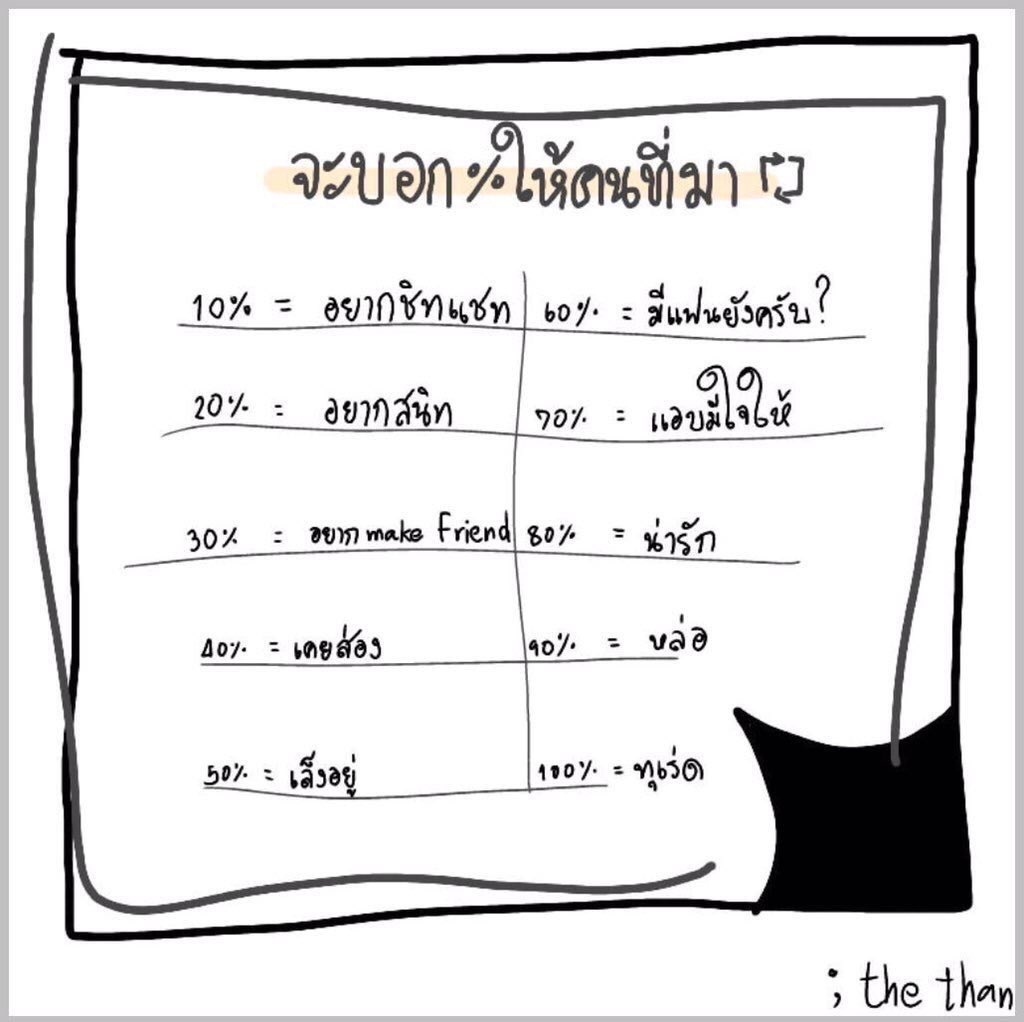 จะบอก % ให้คนที่มา
10% = อยากชิทแชท
20% = อยากสนิท
30% = อยาก make friend
40% = เคยส่อง
50% = เล็งอยู่
60% = มีแฟนยังครับ?
70% = แอบมีใจให้
80% = น่ารัก
90% = หล่อ
100% = ทุเร่ด
; the than